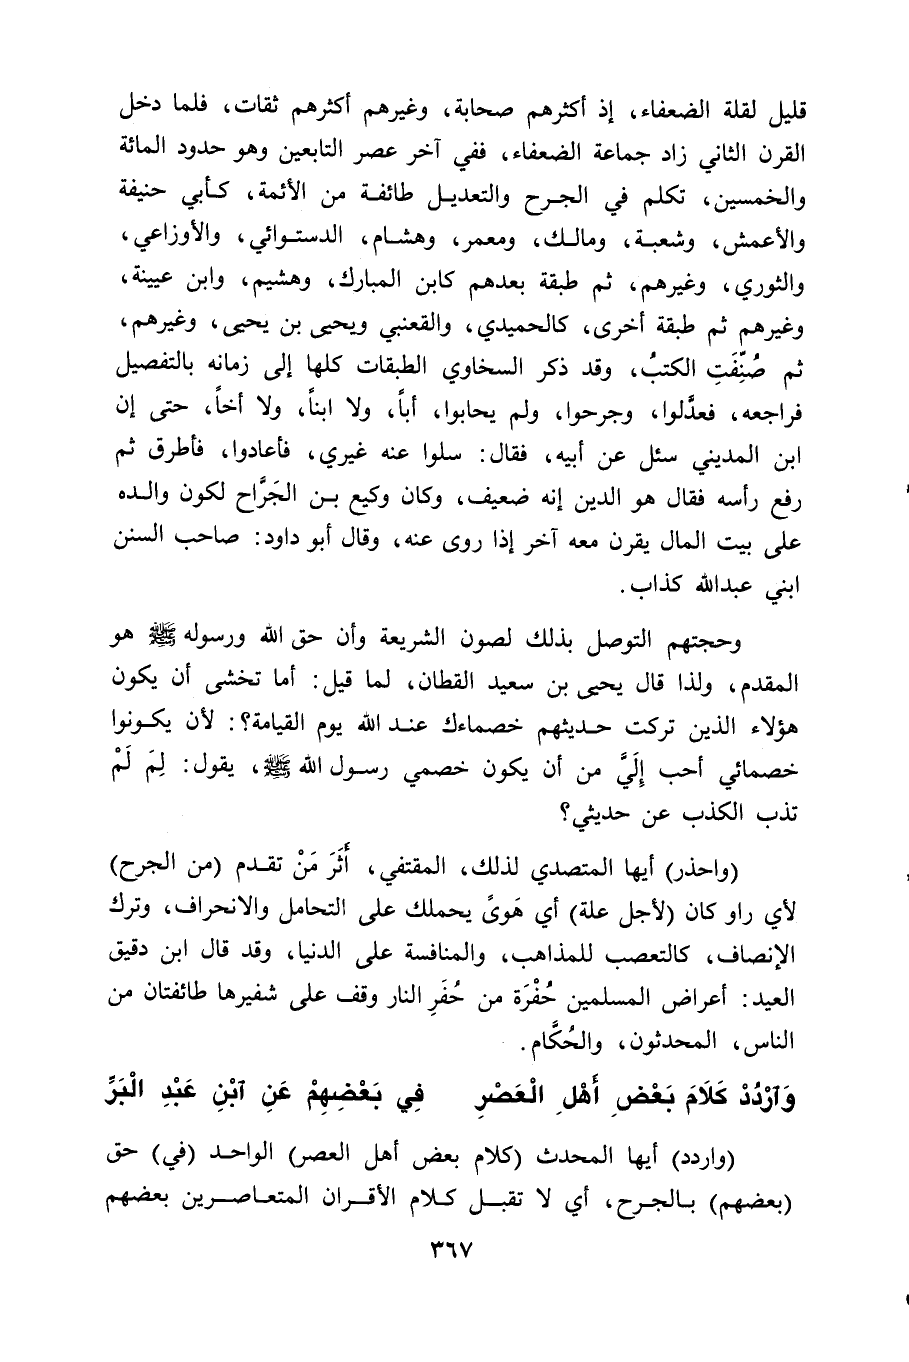 قليل لقلة الضعفاء، إذ أكثرهم صحابة، وغيرهم أكثرهم ثقات، فلما دخل
القرن الثاني زاد جماعة الضعفاء، ففي آخر عصر التابعين وهو حدود المائة
والخمسين، تكلم في الجرح والتعديل طائفة من الأئمة، كأبي حنيفة
والأعمش، وشعبة، ومالك، ومعمر، وهشام، الدستوائي، والأوزاعي،
والثوري، وغيرهم، ثم طبقة بعدهم كابن المبارك، وهشيم، وابن عيينة،
وغيرهم ثم طبقة أخرى، كالحميدي، والقعنبي ويحيى بن يحيى، وغيرهم،
ثم صُنِّفَتِ الكتبُ، وقد ذكر السخاوي الطبقات كلها إلى زمانه بالتفصيل
فراجعه، فعدَّلوا، وجرحوا، ولم يحابوا، أباً، ولا ابناً، ولا أخاً، حتى إن
ابن المديني سئل عن أبيه، فقال: سلوا عنه غيري، فأعادوا، فأطرق ثم
رفع رأسه فقال هو الدين إنه ضعيف، وكان وكيع بن الجَرَّاح لكون والده
على بيت المال يقرن معه آخر إذا روى عنه، وقال أبو داود: صاحب السنن
ابني عبدالله كذاب.
وحجتهم التوصل بذلك لصون الشريعة وأن حق الله ورسوله ﷺ هو
المقدم، ولذا قال يحيى بن سعيد القطان، لما قيل: أما تخشى أن يكون
هؤلاء الذين تركت حديثهم خصماءك عند الله يوم القيامة؟: لأن يكونوا
خصمائي أحب إِلَيَّ من أن يكون خصمي رسول الله ﷺ، يقول: لِمَ لَمْ
تذب الكذب عن حديثي؟
(واحذر) أيها المتصدي لذلك، المقتفي، أَثَرَ مَنْ تقدم (من الجرح)
لأي راو كان (لأجل علة) أي هَوىً يحملك على التحامل والانحراف، وترك
الإنصاف، كالتعصب للمذاهب، والمنافسة على الدنيا، وقد قال ابن دقيق
العيد: أعراض المسلمين حُفْرَة من حُفَرِ النار وقف على شفيرها طائفتان من
الناس، المحدثون، والحُكَّام.
وَٱرْدُدْ كَلَامَ بَعْضِ أَهْلِ الْعَصْرِ فِي بَعْضِهِمْ عَنِ ٱبْنِ عَبْدِ الْبَرِّ
(واردد) أيها المحدث (كلام بعض أهل العصر) الواحد (في) حق
(بعضهم) بالجرح، أي لا تقبل كلام الأقران المتعاصرين بعضهم
٣٦٧